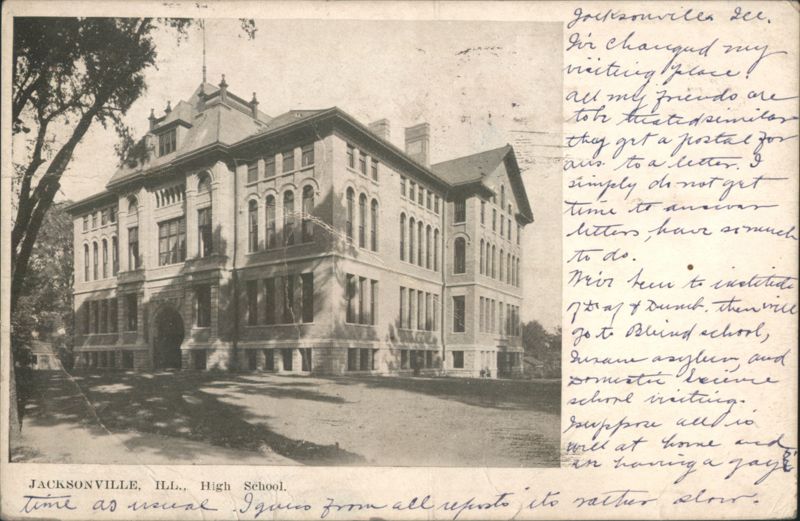 Jacksonville Ill.
I've changed my
visiting place.
all my friends are
to be treated similar
they get a postal for
ans. to a letter. I
simply do not get
time to answer
letters, have so much
to do.
We've been to institute
of Deaf & Dumb. then will
go to Blind school,
Insane asylum, and
Domestic Science
school visiting.
Suppose all is
well at home and
in having a gay
JACKSONVILLE, ILL., High School.
time as usual. I guess from all reports its rather slow.